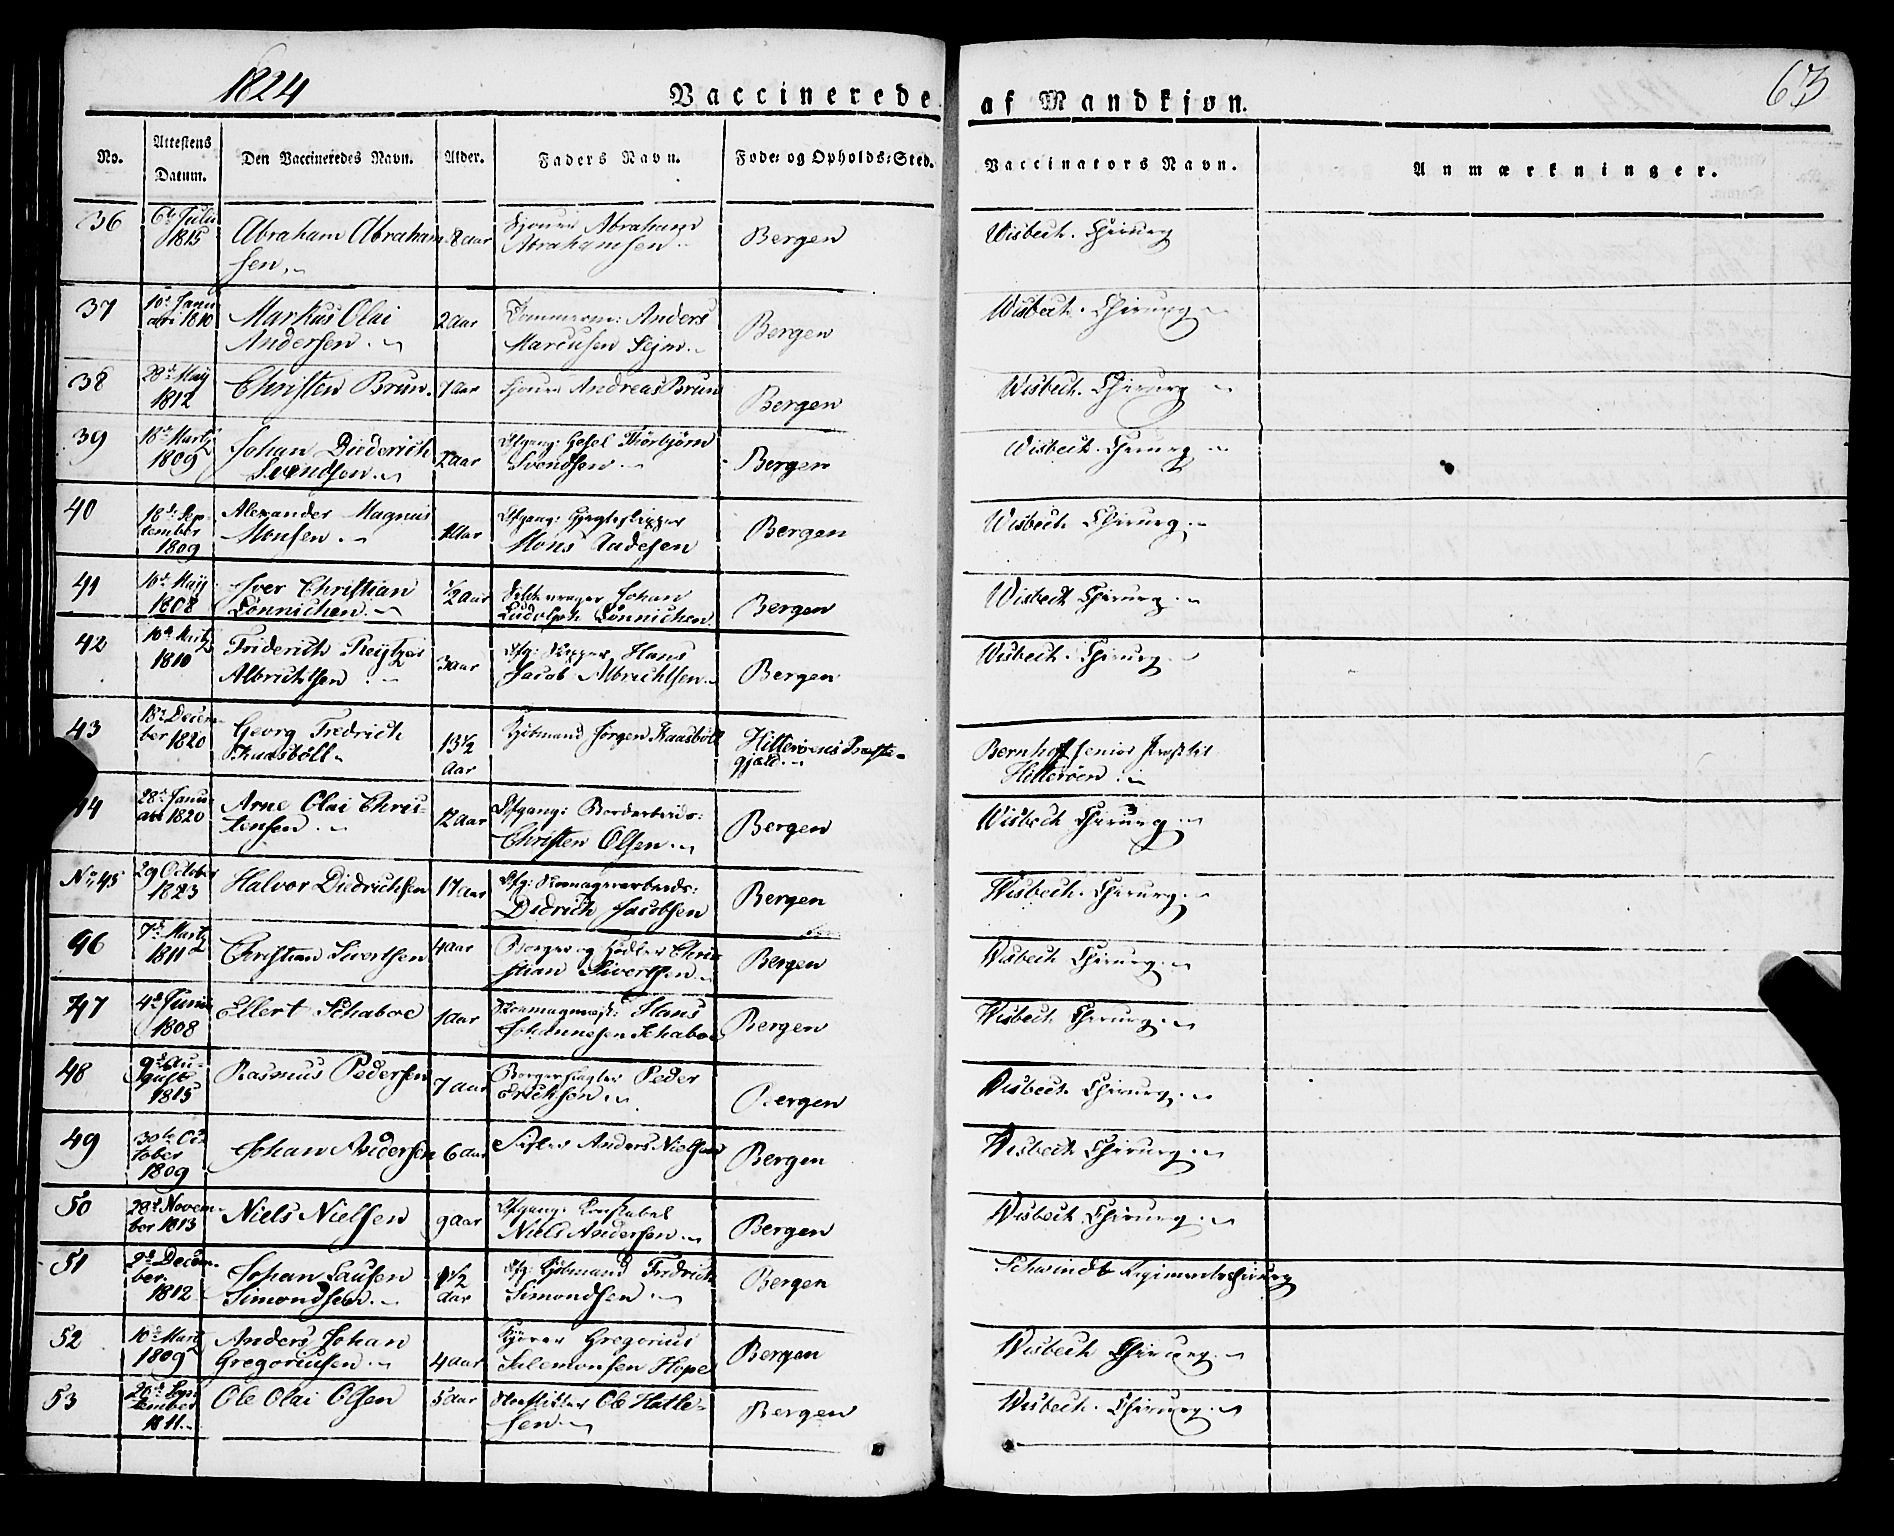 1824
Vaccinerede af Mandkjøn.
63
No. Attestens Datum. Den Vaccineredes Navn. Alder. Faders Navn. Føde- og Opholds-Sted. Vaccinators Navn. Anmærkninger.
36 6te Julii 1815 Abraham Abrahamsen 8 aar Abraham Abrahamsen Bergen Wisbech. Chirurg
37 10d Januari 1810 Markus Olai Andersen 2 aar Tømmerm: Anders Marcusen Sejm Bergen Wisbech. Chirurg
38 28d May 1812 Christen Brun 1 aar Andreas Brun Bergen Wisbech. Chirurg
39 18d Martz 1809 Johan Diderich Svendsen 2 aar Afgang: Thorbjørn Svendsen Bergen Wisbech. Chirurg
40 18d September 1809 Alexander Magnus Monsen 1 aar Afgang: Jægteskipper Mons Bergen Wisbech Chirurg
41 10d Maij 1808 Iver Christian Lønnichen 1/2 aar Johan Ludolph Lønnichen Bergen Wisbech Chirurg
42 10d Martz 1810 Friderich Albrichtsen 3 aar Afg: Skipper Hans Jacob Albrichtsen Bergen Wisbech. Chirurg
43 18d December 1820 Georg Fredrich Kaasbøll 13 1/2 aar Kjøbmand Jørgen Kaasbøll Hitterøens Præstegjæld Bernhoft senior Præst til Hitterøen
44 28d Januari 1820 Arne Olai Christensen 12 aar Afgang: Christen Olsen Bergen Wisbech Chirurg
No 45 29 October 1823 Halvor Diedrichsen 17 aar Afg: Didrich Jacobsen Bergen Wisbech. Chirurg
46 7d Martz 1811 Christian Sivertsen 4 aar Borger og Christian Sivertsen Bergen Wisbech Chirurg
47 4d Junii 1808 Ellert Schaboe 1 aar Hans Johannesen Schaboe Bergen Wisbech Chirurg
48 9d August 1815 Rasmus Pedersen 7 aar Peder Erichsen Bergen Wisbech. Chirurg
49 30te October 1809 Johan Andersen 6 aar Anders Nielsen Bergen Wisbech Chirurg
50 28d November 1813 Niels Nielsen 9 aar Afgang: Niels Andersen Bergen Wisbech Chirurg
51 9d December 1812 Johan Lausen Simondsen 1 1/2 aar Afg: Kjøbmand Fredrich Simondsen Bergen Schwindt Regimentschirurg
52 10d Martz 1809 Anders Johan Gregoriusen 4 aar Gregorius Salemonsen Hope Bergen Wisbech Chirurg
53 26d September 1811 Ole Olai Olsen 5 aar Ole Bergen Wisbech. Chirurg